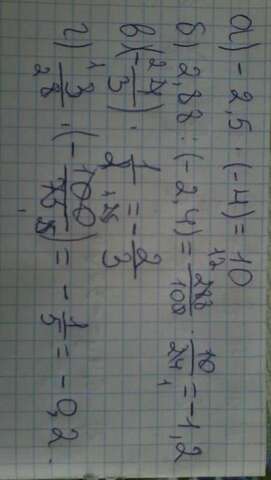 а) -2,5 · (-4) = 10
б) 2,88 : (-2,4) = 288/100 · 10/24 = -1,2
в) (-24/3) · 1/2 = -2/3
г) 3/28 · (-100/75) = -1/5 = -0,2.